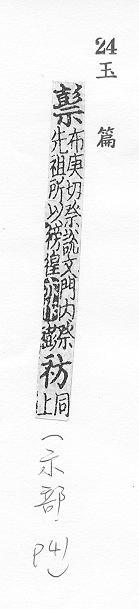 24
玉篇
𥛱
布庚切祭說文門內祭
先祖所以徬徨
祊
同上
(示部. P41)